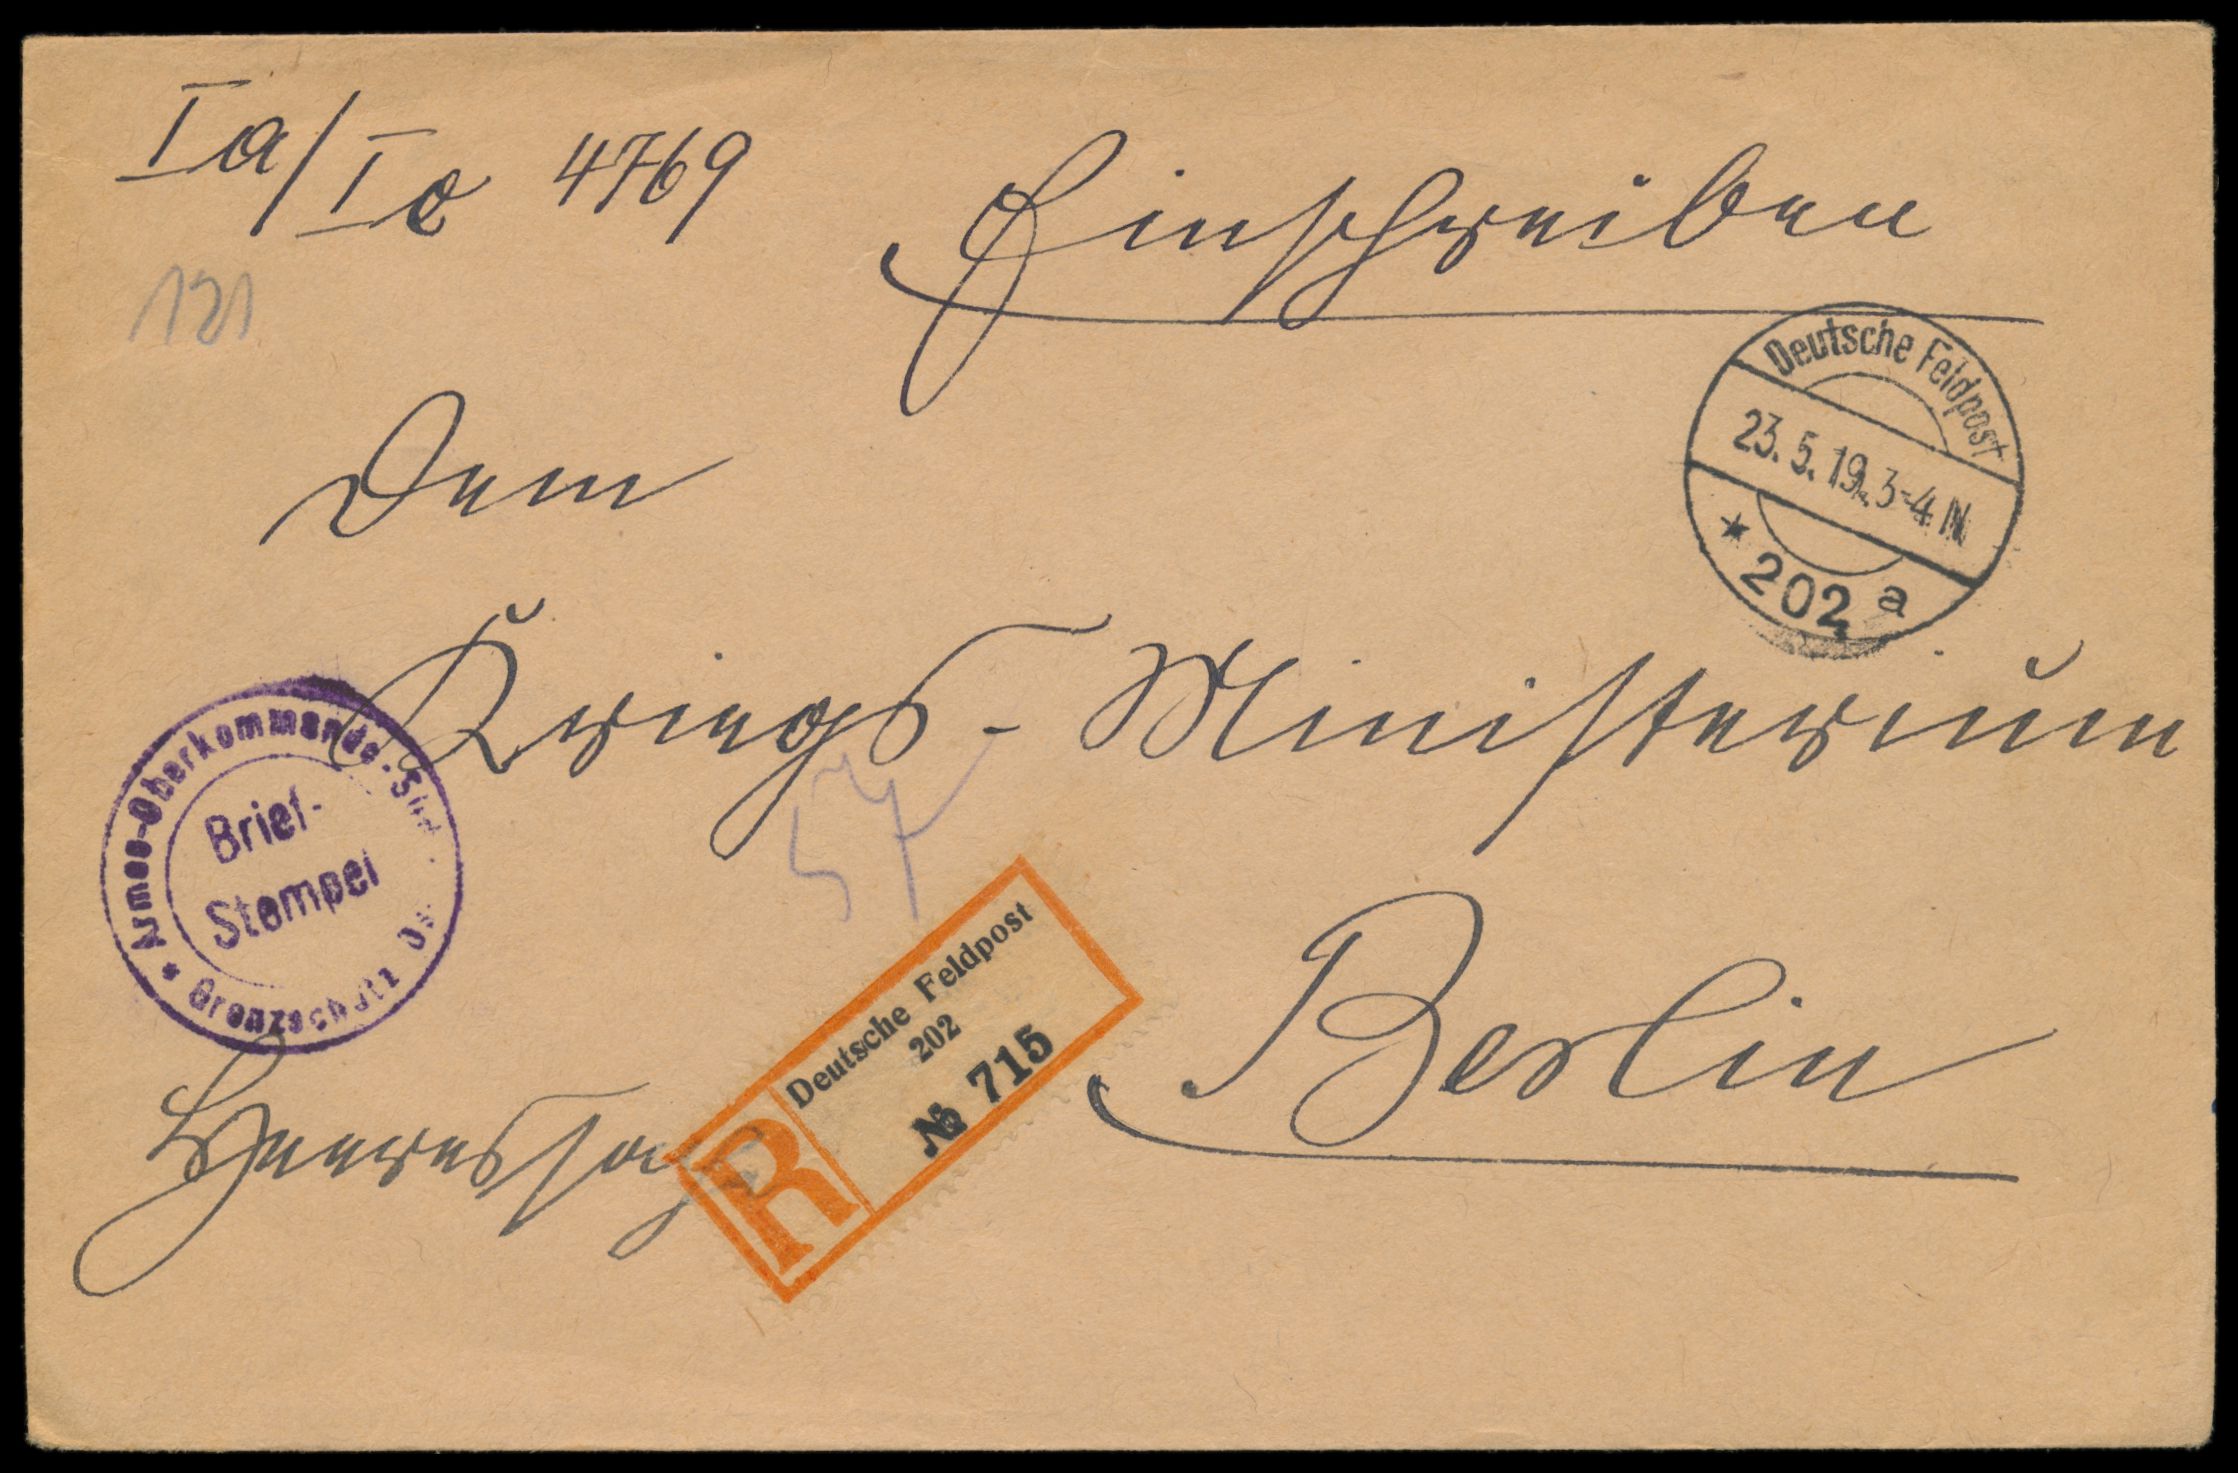 Ia/Ic 4769
Einschreiben
121
Deutsche Feldpost
23.5.19.3-4 N
* 202 a
Dem
Kriegs-Ministerium
57
Armee-Oberkommando
Brief-
Stempel
* Grenzschutz
Deutsche Feldpost
202
R
№ 715
Berlin
Heeressache